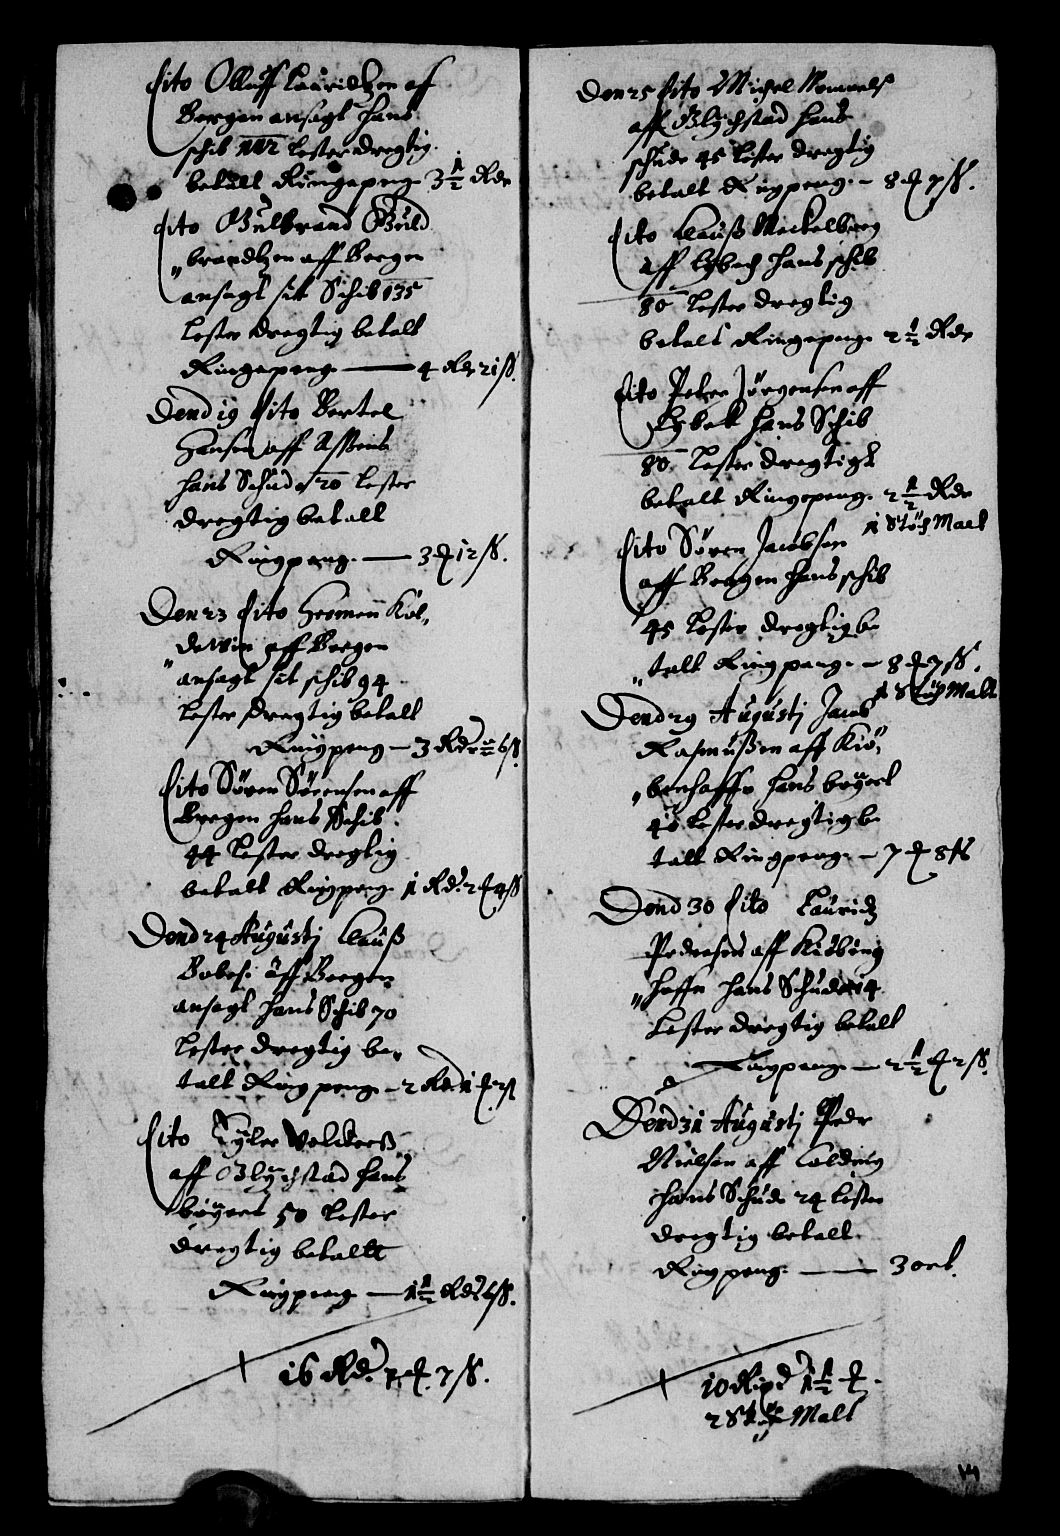 Dito Oluff Lauridtzen aff
Bergen ansagt hans
schib 112 Lester dregtig
betalt Ringepeng 3 1/2 Rdr
Dito Gulbrand Guld
brandtzen aff Bergen
ansagt sit Schib 135
Lester dregtig betalt
Ringepeng — 4 Rdr 21 ß.
Dend 19 Dito Bertel
Hansen aff Assens
hans Schude 20 Lester
dregtig betalt
Ringpeng — 3 12 ß.
Den 23 Dito Hermen Köl„
„dewin aff Bergen
ansagt sit schib 94
Lester dregtig betalt
Ringpeng — 3 Rdr 6 ß.
Dito Sören Sörensen aff
Bergen hans Schib
44 Lester dregtig
betalt Ringpeng 1 Rd. 2 4 ß
Dend 24 Augustj Clauß
aff Bergen
ansagt hans Schib 70
Lester dregtig be„
talt Ringpeng – 2 Rd. 1 2 ß
Dito Volckerß
aff Glychstad hans
böyert 50 Lester
dregtig betallt
Ringpeng — 1 1/2 Rd 6 ß.
16 Rd. 7 ß.
Den 25 Dito Michel
aff Glychstad hans
schude 45 Lester dregtig
betalt Ringpeng – 8 7 ß.
Dito Clauß Meckelborg
aff Lybech hans schib
80 Lester dregtig
betalt Ringepeng 2 1/2 Rdr
Dito Peter Jörgensen aff
Lybek hans Schib
80 Lester dregtigt
betalt Ringepeng 2 1/2 Rdr
1 Stöch Malt
Dito Sören Jacobsen
aff Bergen hans schib
45 Lester dregtig be
„talt Ringpeng – 8 7 ß.
1 Stöch Malt
Dend 29 Augustj Jacob
Rasmußen aff Kiö„
„benhaffn hans böyert
40 Lester dregtig be
talt Ringpeng – 7 8 ß
Dend 30 Dito Lauridz
Pedersen aff Kiöbing
„haffn hans Schude 14
Lester dregtig betalt
Ringpeng — 2 1/2 2 ß.
Dend 31 Augustj Peder
Nielsen aff Colding
hans Schude 24 Lester
dregtig betalt
Ringpeng — 3 ort.
10 Rixd 1 1/2
2 Stöch Malt